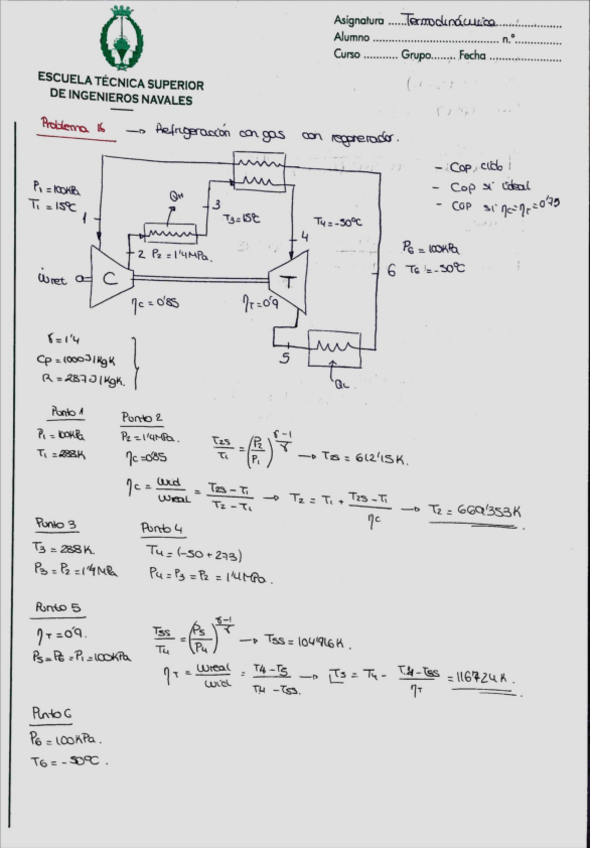 Asignatura ..... Termodinámica
Alumno ..... n.º .....
Curso ..... Grupo ..... Fecha .....
ESCUELA TÉCNICA SUPERIOR
DE INGENIEROS NAVALES
Problema 16 → Refrigeración con gas con regenerador.
- COP ciclo
- COP si ideal
- COP si ηc=ηT=0'75
P1=100kPa
T1=15ºC
QH
1
3
T3=15ºC
T4=-50ºC
4
2 P2=1'4MPa.
P6=100kPa
6 T6=-50ºC
C
T
ηc=0'85
ηT=0'9
5
QL
γ=1'4
Cp=1000J/kgK
R=287J/kgK.
Punto 1
P1=100kPa
T1=288K
Punto 2
P2=1'4MPa.
ηc=0'85
T2s/T1 = (P2/P1)^((γ-1)/γ) → T2s = 612'15K.
ηc = Wid/Wreal = (T2s-T1)/(T2-T1) → T2 = T1 + (T2s-T1)/ηc → T2 = 669'353K
Punto 3
T3=288K
P3=P2=1'4MPa
Punto 4
T4=(-50+273)
P4=P3=P2=1'4MPa.
Punto 5
ηT=0'9.
P5=P6=P1=100kPa
T5s/T4 = (P5/P4)^((γ-1)/γ) → T5s = 104'916K.
ηT = Wreal/Wid = (T4-T5)/(T4-T5s) → T5 = T4 - (T4-T5s)/ηT = 116'724K.
Punto 6
P6=100kPa.
T6=-50ºC.